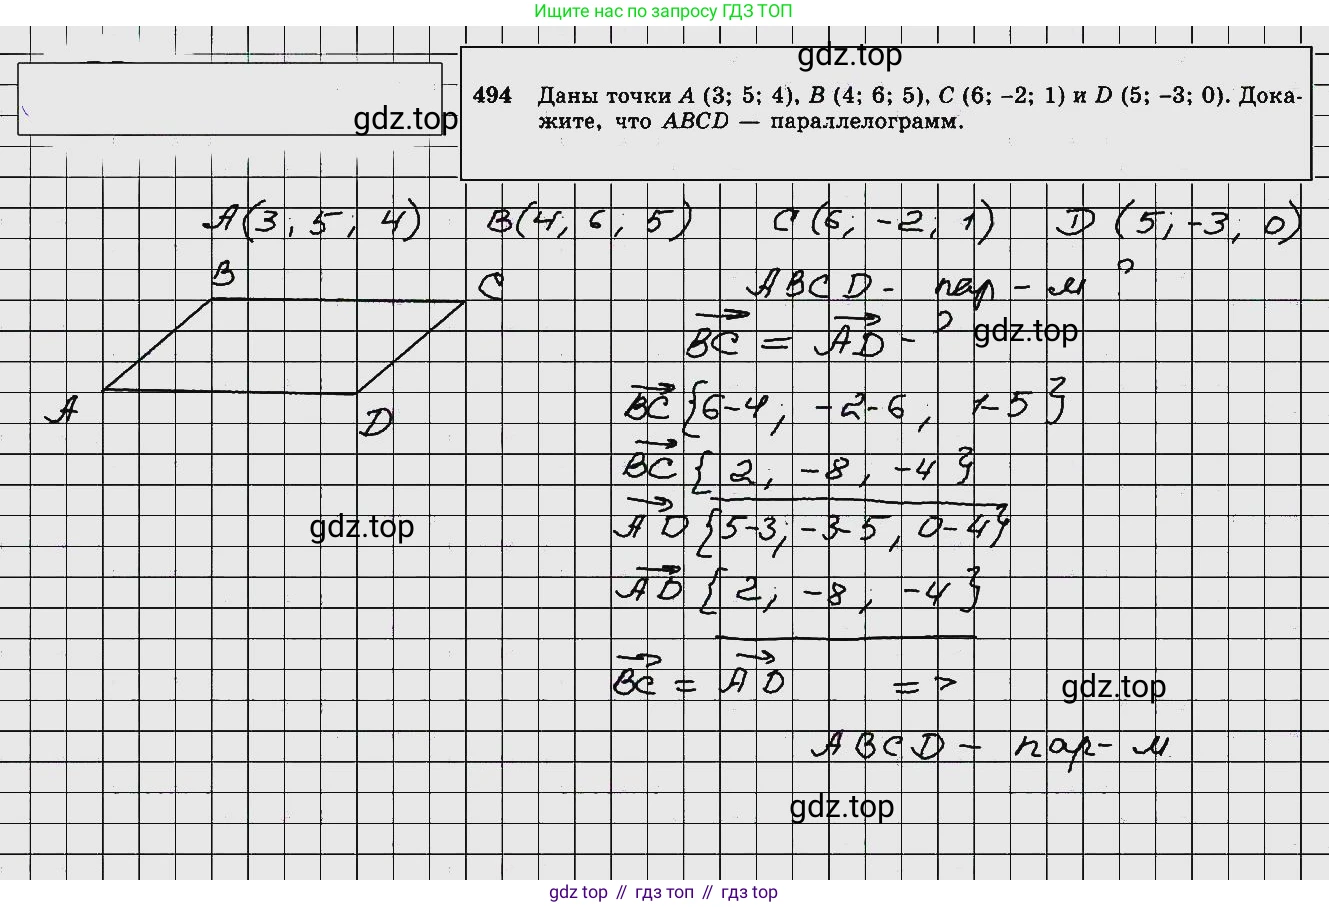 Ищите нас по запросу ГДЗ ТОП
gdz.top
494 Даны точки A (3; 5; 4), B (4; 6; 5), C (6; –2; 1) и D (5; –3; 0). Дока-
жите, что ABCD — параллелограмм.
gdz.top
A(3; 5; 4) B(4; 6; 5) C(6; -2; 1) D(5; -3; 0)
B C
ABCD - пар-м ?
BC = AD - ?
gdz.top
A D
BC {6-4; -2-6; 1-5}
BC {2; -8; -4}
gdz.top
AD {5-3; -3-5; 0-4}
AD {2; -8; -4}
BC = AD =>
gdz.top
ABCD - пар-м
gdz.top
gdz top // гдз топ // gdz top